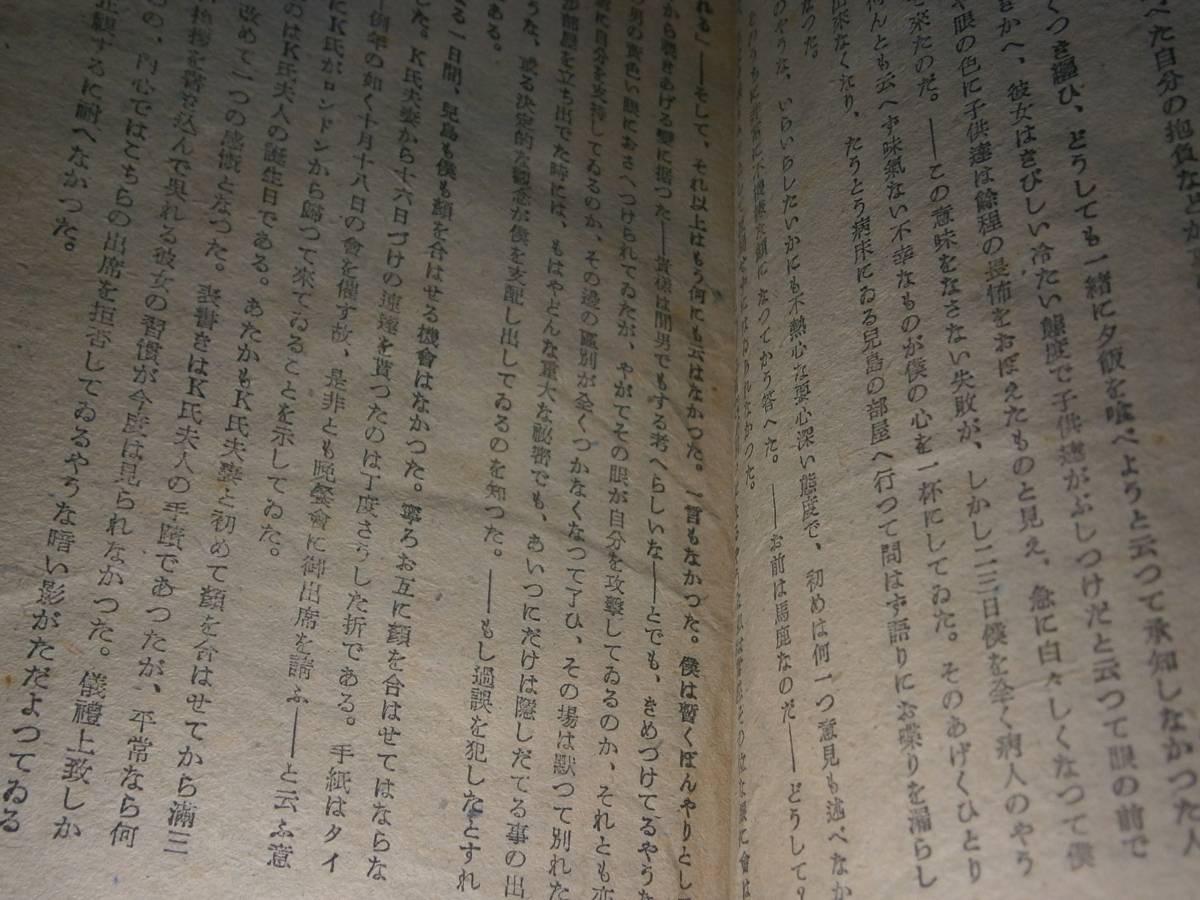 べた自分の抱負など
くつき溫び、どうしても一緒に夕飯を喰べようと云つて承知しなかつた人
きかへ、彼女はきびしい冷たい態度で子供達がぶしつけだと云つて眼の前で
や眼の色に子供達は餘程の畏怖をおぼえたものと見え、急に白々しくなつて僕
て來たのだ。――この意味をなさない失敗が、しかし二三日僕を全く病人のやう
何んとも云へず味氣ない不幸なものが僕の心を一杯にしてゐた。そのあげくひとり
出來なくなり、たうとう病床にゐる兒島の部屋へ行つて問はず語りにお喋りを漏らし
なつた。
のやうな、いらいらしたいかにも不熱心な要心深い態度で、初めは何一つ意見も述べなか
になつてかう答へた。――お前は馬鹿なのだ――どうして?
れる」――そして、それ以上はもう何にも云はなかつた。一言もなかつた。僕は暫くぼんやりとして
から聲をあげる變に掘つた――貴樣は間男でもする考へらしいな――とでも、きめつけてるやうな
の男の黃色い眼におさへつけられてゐたが、やがてその眼が自分を攻擊してゐるのか、それとも
に自分を支持してゐるのか、その邊の區別が全くつかなくなつて了ひ、その場は默つて別れた
部屋を立ち出でた時には、もはやどんな重大な祕密でも、あいつにだけは隱しだてる事の出
うな、或る決定的な觀念が僕を支配し出してゐるのを知つた。――もし過誤を犯したとすれ
ある。
る一日間、兒島も僕も顏を合はせる機會はなかつた。寧ろお互に顏を合はせてはならな
した。K氏夫妻から十六日づけの速達を貰つたのは丁度さうした折である。手紙はタイ
例年の如く十月十八日の會を催す故、是非とも晩餐會に御出席を請ふ――と云ふ意
にK氏がロンドンから歸つて來てゐることを示してゐた。
のはK氏夫人の誕生日である。あたかもK氏夫妻と初めて顏を合はせてから滿三
改めて一つの感慨となつた。裏書きはK氏夫人の手蹟であつたが、平常なら何
挨拶を書き込んで吳れる彼女の習慣が今度は見られなかつた。儀禮上致しか
もの、內心ではこちらの出席を拒否してゐるやうな暗い影がただよつてゐる
正視するに耐へなかつた。